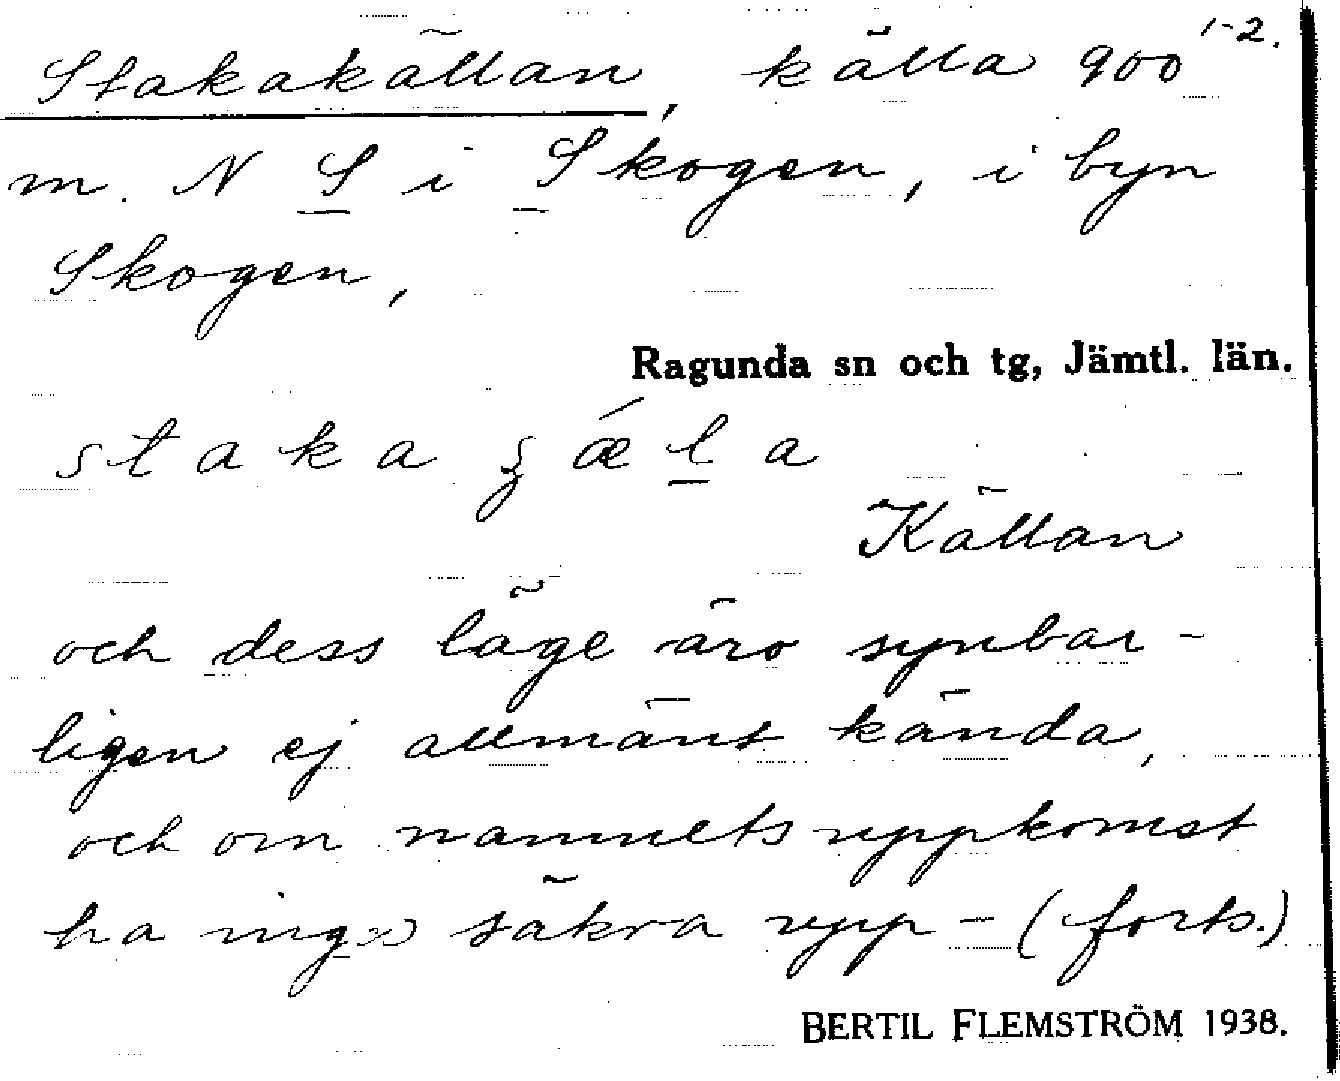 1-2.
Stakakällan, källa 900
m. N S i Skogen, i byn
Skogen,
Ragunda sn och tg, Jämtl. län.
staka ʒǽla
Källan
och dess läge äro synbar-
ligen ej allmänt kända,
och om namnets uppkomst
ha inga säkra upp- (forts.)
BERTIL FLEMSTRÖM 1938.